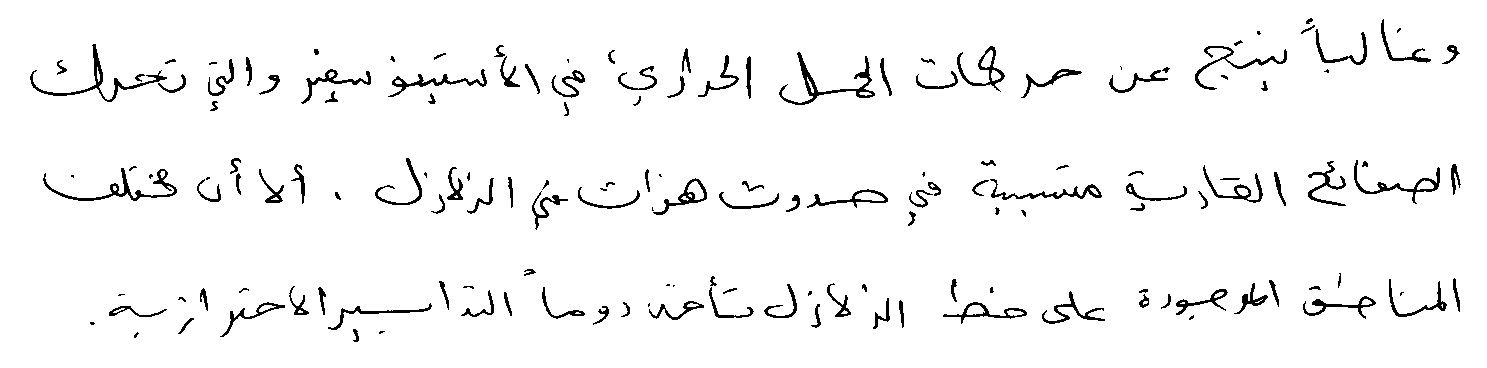 وغالباً ينتج عن حركات الحمل الحراري، في الأستينوسفير والتي تحرك
الصفائح القارية متسببة في حدوث هزات من الزلازل . ألا أن مختلف
المناطق الموجودة على خط الزلازل تأخذ دوماً التدابير الاحترازية.